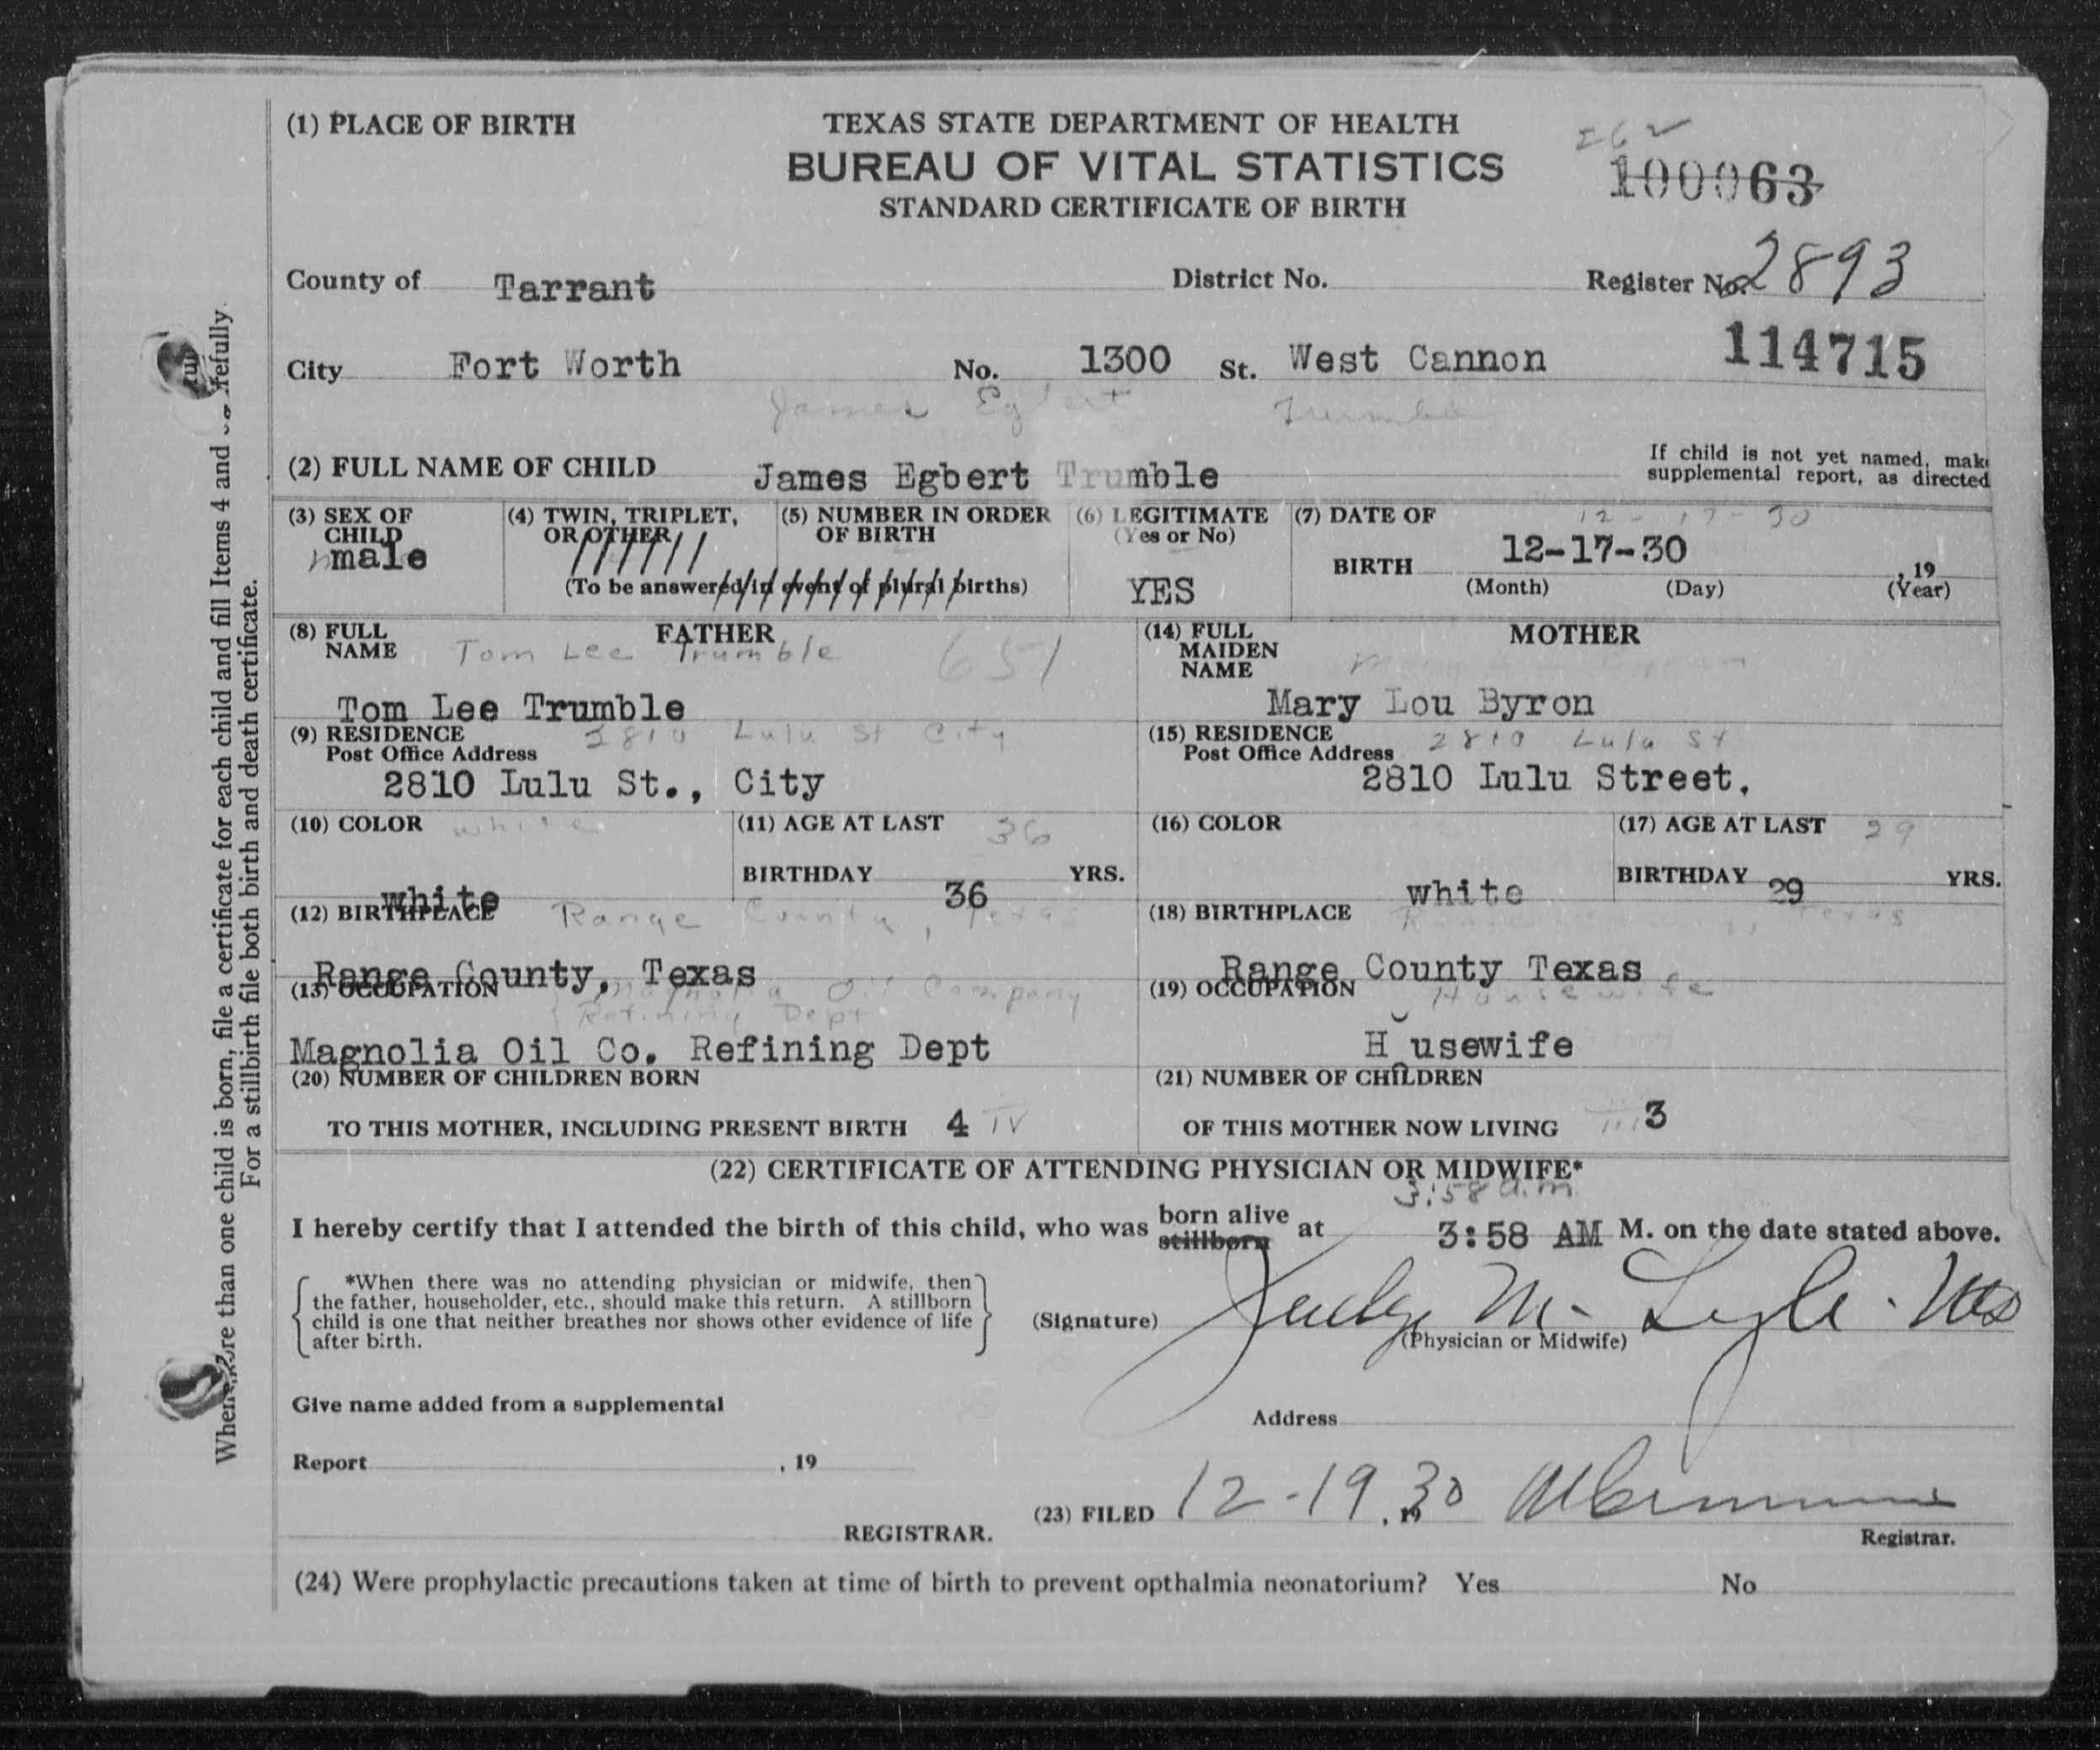 (1) PLACE OF BIRTH
TEXAS STATE DEPARTMENT OF HEALTH
BUREAU OF VITAL STATISTICS
STANDARD CERTIFICATE OF BIRTH
100063
County of Tarrant District No. Register No. 2893
City Fort Worth No. 1300 St. West Cannon 114715
James Egbert
(2) FULL NAME OF CHILD James Egbert Trumble
If child is not yet named, make
supplemental report, as directed
(3) SEX OF CHILD male
(4) TWIN, TRIPLET, OR OTHER
(5) NUMBER IN ORDER OF BIRTH
(To be answered in event of plural births)
(6) LEGITIMATE (Yes or No) YES
(7) DATE OF BIRTH 12-17-30 12-17-30 , 19
(Month) (Day) (Year)
(8) FULL NAME FATHER
Tom Lee Trumble 651
Tom Lee Trumble
(14) FULL MAIDEN NAME MOTHER
Mary Lou Byron
(9) RESIDENCE 2810 Lulu St City
Post Office Address
2810 Lulu St., City
(15) RESIDENCE 2810 Lulu St
Post Office Address
2810 Lulu Street.
(10) COLOR white
white
(11) AGE AT LAST 36
BIRTHDAY 36 YRS.
(16) COLOR
white
(17) AGE AT LAST 29
BIRTHDAY 29 YRS.
(12) BIRTHPLACE Range County, Texas
Range County, Texas
(18) BIRTHPLACE Texas
Range County Texas
(13) OCCUPATION Magnolia Oil Company
Refining Dept
Magnolia Oil Co. Refining Dept
(19) OCCUPATION Housewife
H usewife
(20) NUMBER OF CHILDREN BORN
TO THIS MOTHER, INCLUDING PRESENT BIRTH 4 IV
(21) NUMBER OF CHILDREN
OF THIS MOTHER NOW LIVING III 3
(22) CERTIFICATE OF ATTENDING PHYSICIAN OR MIDWIFE*
3:58 a.m.
I hereby certify that I attended the birth of this child, who was born alive stillborn at 3:58 AM M. on the date stated above.
*When there was no attending physician or midwife, then
the father, householder, etc., should make this return. A stillborn
child is one that neither breathes nor shows other evidence of life
after birth.
(Signature) Judge M. Lyle. MD
(Physician or Midwife)
Give name added from a supplemental
Address
Report , 19
(23) FILED 12-19, 19 30
REGISTRAR.
Registrar.
(24) Were prophylactic precautions taken at time of birth to prevent opthalmia neonatorium? Yes No
than one child is born, file a certificate for each child and fill Items 4 and
For a stillbirth file both birth and death certificate.